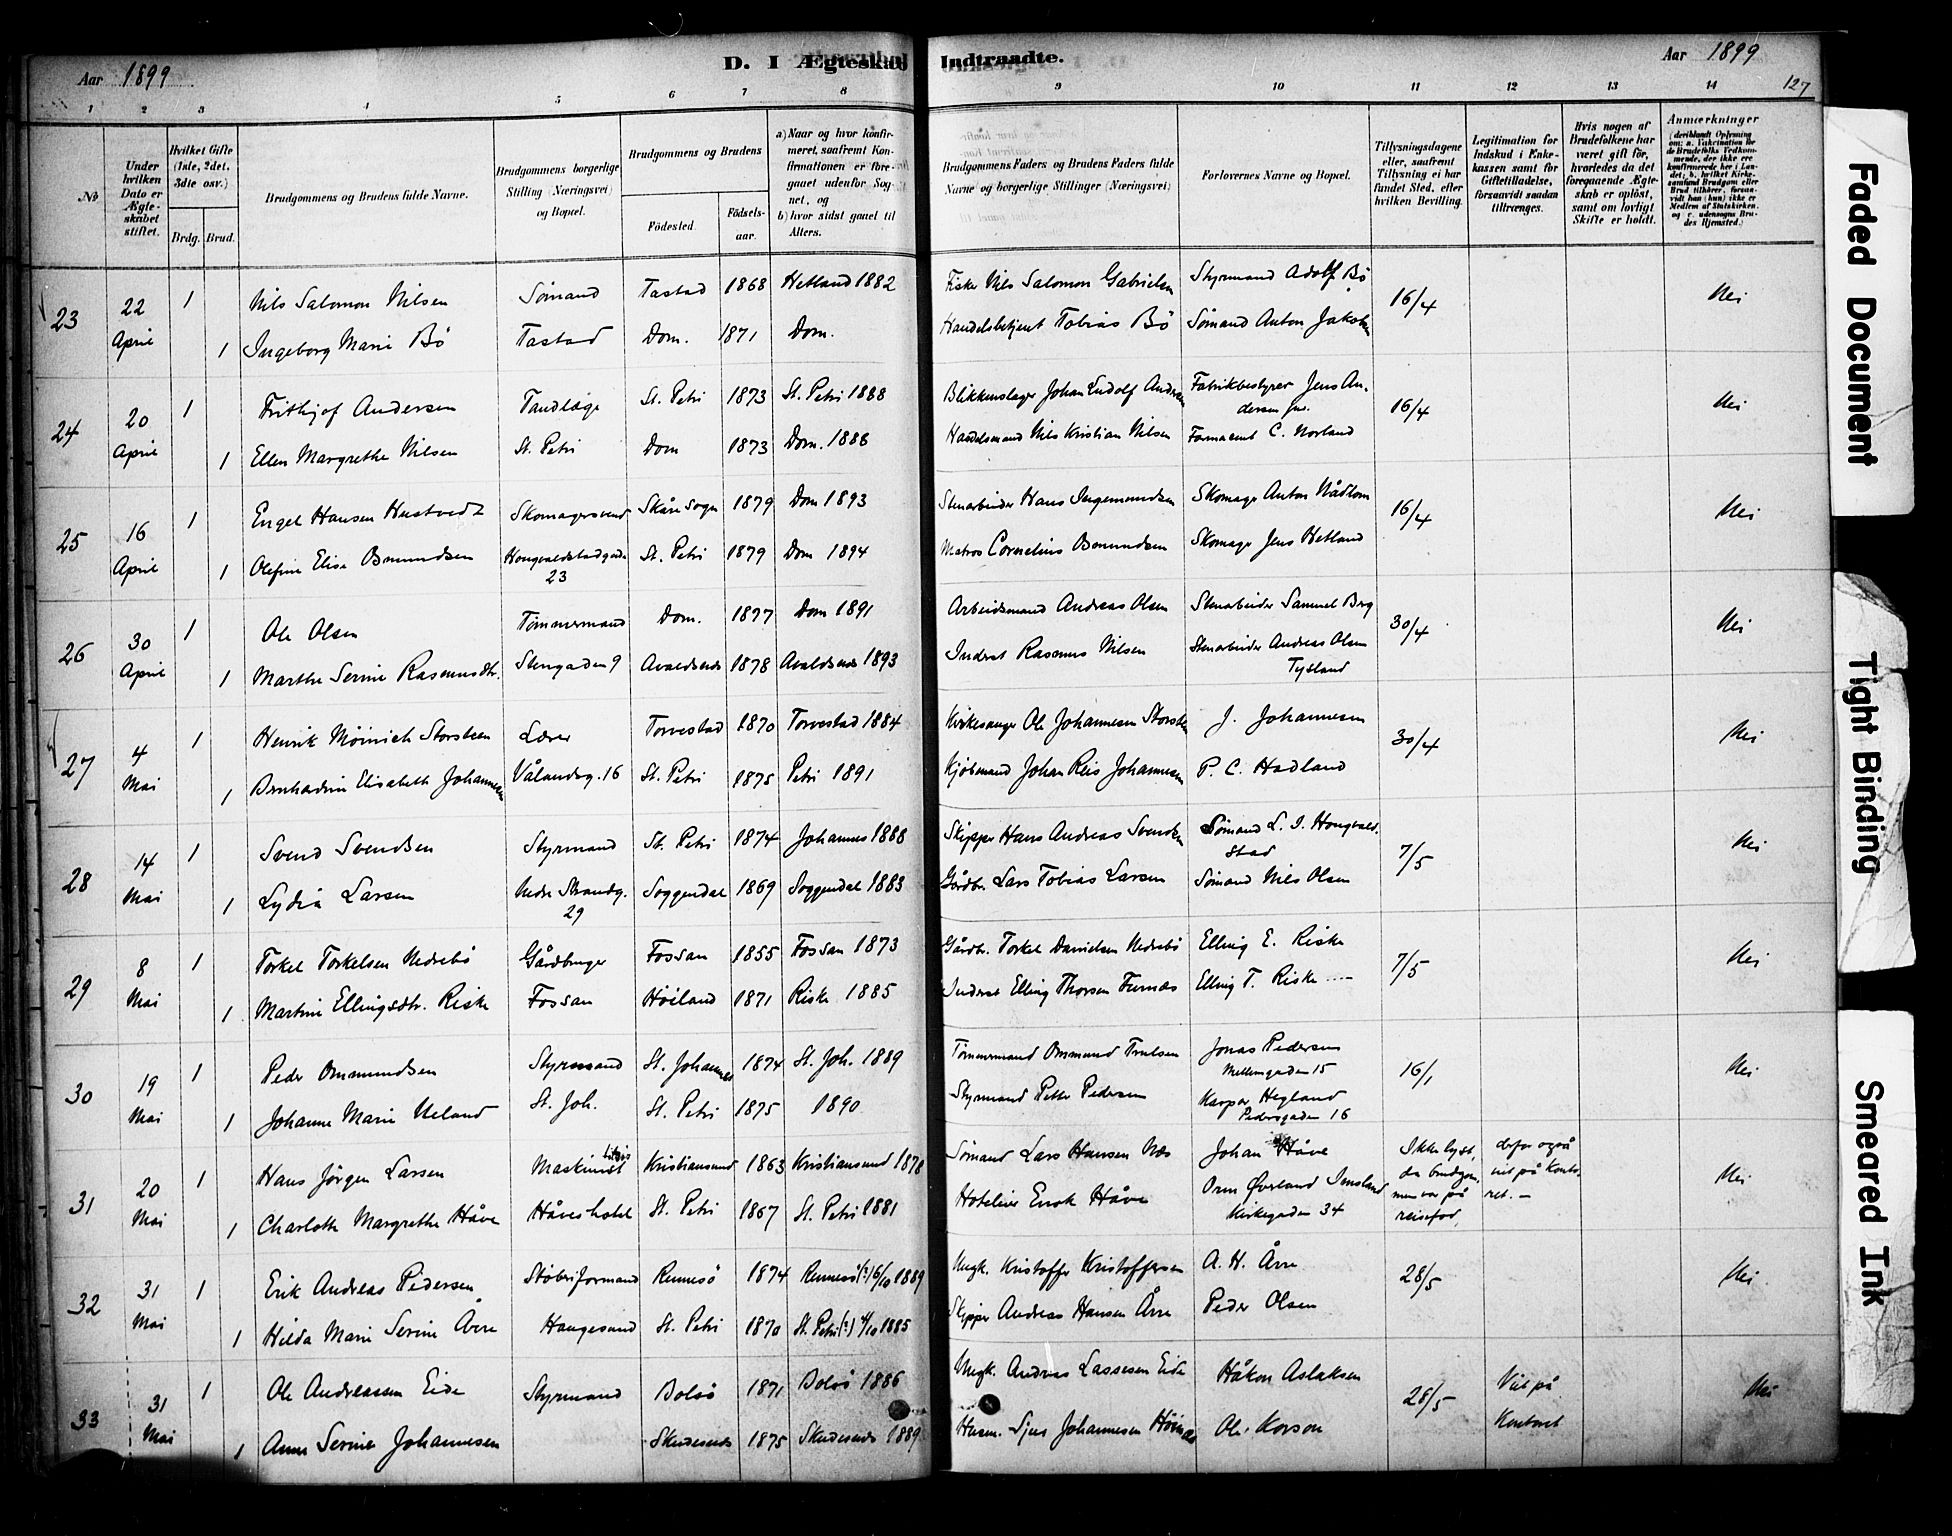 Aar 1899
D. I Ægteskab Indtraadte.
Aar 1899
127
1 2 3 4 5 6 7 8 9 10 11 12 13 14
No
Under hvilken Dato er Ægteskabet stiftet.
Hvilket Gifte (1ste, 2det, 3die osv.)
Brdg. Brud.
Brudgommens og Brudens fulde Navne.
Brudgommens borgerlige Stilling (Næringsvei) og Bopæl.
Brudgommens og Brudens
Fødested.
Fødselsaar.
a) Naar og hvor konfirmeret, saafremt Konfirmationen er foregaaet udenfor Sognet, og
b) hvor sidst gaaet til Alters.
Brudgommens Faders og Brudens Faders fulde Navne og borgerlige Stillinger (Næringsvei)
Forlovernes Navne og Bopæl.
Tillysningsdagene eller, saafremt Tillysning ei har fundet Sted, efter hvilken Bevilling.
Legitimation for Indskud i Enkekassen samt for Giftetilladelse, forsaavidt saadan tiltrænges.
Hvis nogen af Brudefolkene har været gift før, hvorledes da det foregaaende Ægteskab er opløst, samt om lovligt Skifte er holdt.
Anmærkninger (deriblandt Oplysning om: a. Vakcination for de Brudefolks Vedkommende, der ikke ere konfirmerede her i Landet; b. hvilket Kirkesamfund Brudgom eller Brud tilhører, forsaavidt han (hun) ikke er Medlem af Statskirken, og c. udensogns Brudes Hjemsted.)
23 22 April 1 Nils Salomon Nilsen Sømand Tastad 1868 Hetland 1882 Fisker Nils Salomon Gabrielsen Styrmand Adolf Bö 16/4 Nei
1 Ingeborg Marie Bö Tastad Dom. 1871 Dom. Handelsbetjent Tobias Bö Sømand Anton Jakobsen
24 20 April 1 Frithjof Andersen Tandlæge St. Petri 1873 St. Petri 1888 Blikkenslager Johan Ludolf Andersen Fabrikbestyrer Jens Andersen jne. 16/4 Nei
1 Ellen Margrethe Nilsen St. Petri Dom 1873 Dom. 1886 Handelsmand Nils Kristian Nilsen Farmaceut C. Norland
25 16 April 1 Engel Hansen Hustvedt Skomagersvend Skåre Sogn 1879 Dom 1893 Stenarbeider Hans Ingemundsen Skomager Anton Nådlom 16/4 Nei
1 Olefine Elise Osmundsen Hongvaldstadgade 23 St. Petri 1879 Dom 1894 Matros Cornelius Osmundsen Skomager Jens Hetland
26 30 April 1 Ole Olsen Tømmermand Dom. 1877 Dom 1891 Arbeidsmand Andreas Olsen Stenarbeider Samuel Berg 30/4 Nei
1 Marthe Serine Rasmusdtr. Stengaden 9 Avaldsnes 1878 Avaldsnes 1893 Inderst Rasmus Nilsen Stenarbeider Andreas Olsen Tysland
27 4 Mai 1 Henrik Møinich Storsteen Lærer Torvestad 1870 Torvestad 1884 Kirkesanger Ole Johannesen Storsteen J. Johannesen 30/4 Nei
1 Bernhardine Elisabeth Johannesen Vålandsg. 16 St. Petri 1875 Petri 1891 Kjøbmand Johan Reis Johannesen P. C. Hadland
28 14 Mai 1 Svend Svendsen Styrmand St. Petri 1874 Johannes 1888 Skipper Hans Andreas Svendsen Sømand L. I. Hongvaldstad 7/5 Nei
1 Lydia Larsen Nedre Strandg. 29 Soggendal 1869 Soggendal 1883 Gårdbr. Lars Tobias Larsen Sømand Nils Olsen
29 8 Mai 1 Torkel Torkelsen Nedrebö Gårdbruger Fossan 1855 Fossan 1873 Gårdbr. Torkel Danielsen Nedrebö Elling E. Riske 7/5 Nei
1 Martine Ellingsdtr. Riske Fossan Höiland 1871 Riske 1885 Inderst Elling Thorsen Furnæs Elling T. Riske
30 19 Mai 1 Peder Ommundsen Styrmand St. Johannes 1874 St. Joh. 1889 Tømmermand Ommund Trulsen Jonas Pedersen Mellemgaden 15 16/1 Nei
1 Johanne Marie Ueland St. Joh. St. Petri 1875 1890 Styrmand Petter Pedersen Kasper Hegland Pedersgaden 16
31 20 Mai 1 Hans Jörgen Larsen Maskinist Kristiansund 1863 Kristiansund 1878 Sømand Lars Hansen Næs Johan Håve Ikke lyst, da brudgommen var på reisefod, derfor også viet på kontoret. Nei
1 Charlotte Margrethe Håve Håves hotel St. Petri 1867 St. Petri 1881 Hotelier Enok Håve Orm Øverland Imsland Kirkegaden 34
32 31 Mai 1 Erik Andreas Pedersen Støberiformand Rennesö 1874 Rennesö (?) 6/10 1889 Ungk. Kristoffer Kristoffersen A. H. Årre 28/5 Nei
1 Hilda Marie Serine Årre Haugesund St. Petri 1870 St. Petri (?) 4/10 1885 Skipper Andreas Hansen Årre Peder Olsen
33 31 Mai 1 Ole Andreassen Eide Styrmand Bolsö 1871 Bolsö 1886 Ungk. Andreas Lassesen Eide Håkon Aslaksen 28/5 Viet på Kontoret Nei
1 Anne Serine Johannesen Skudesnes 1875 Skudesnes 1889 Husm. Sjur Johannesen Ole Korson
Faded Document
Tight Binding
Smeared Ink